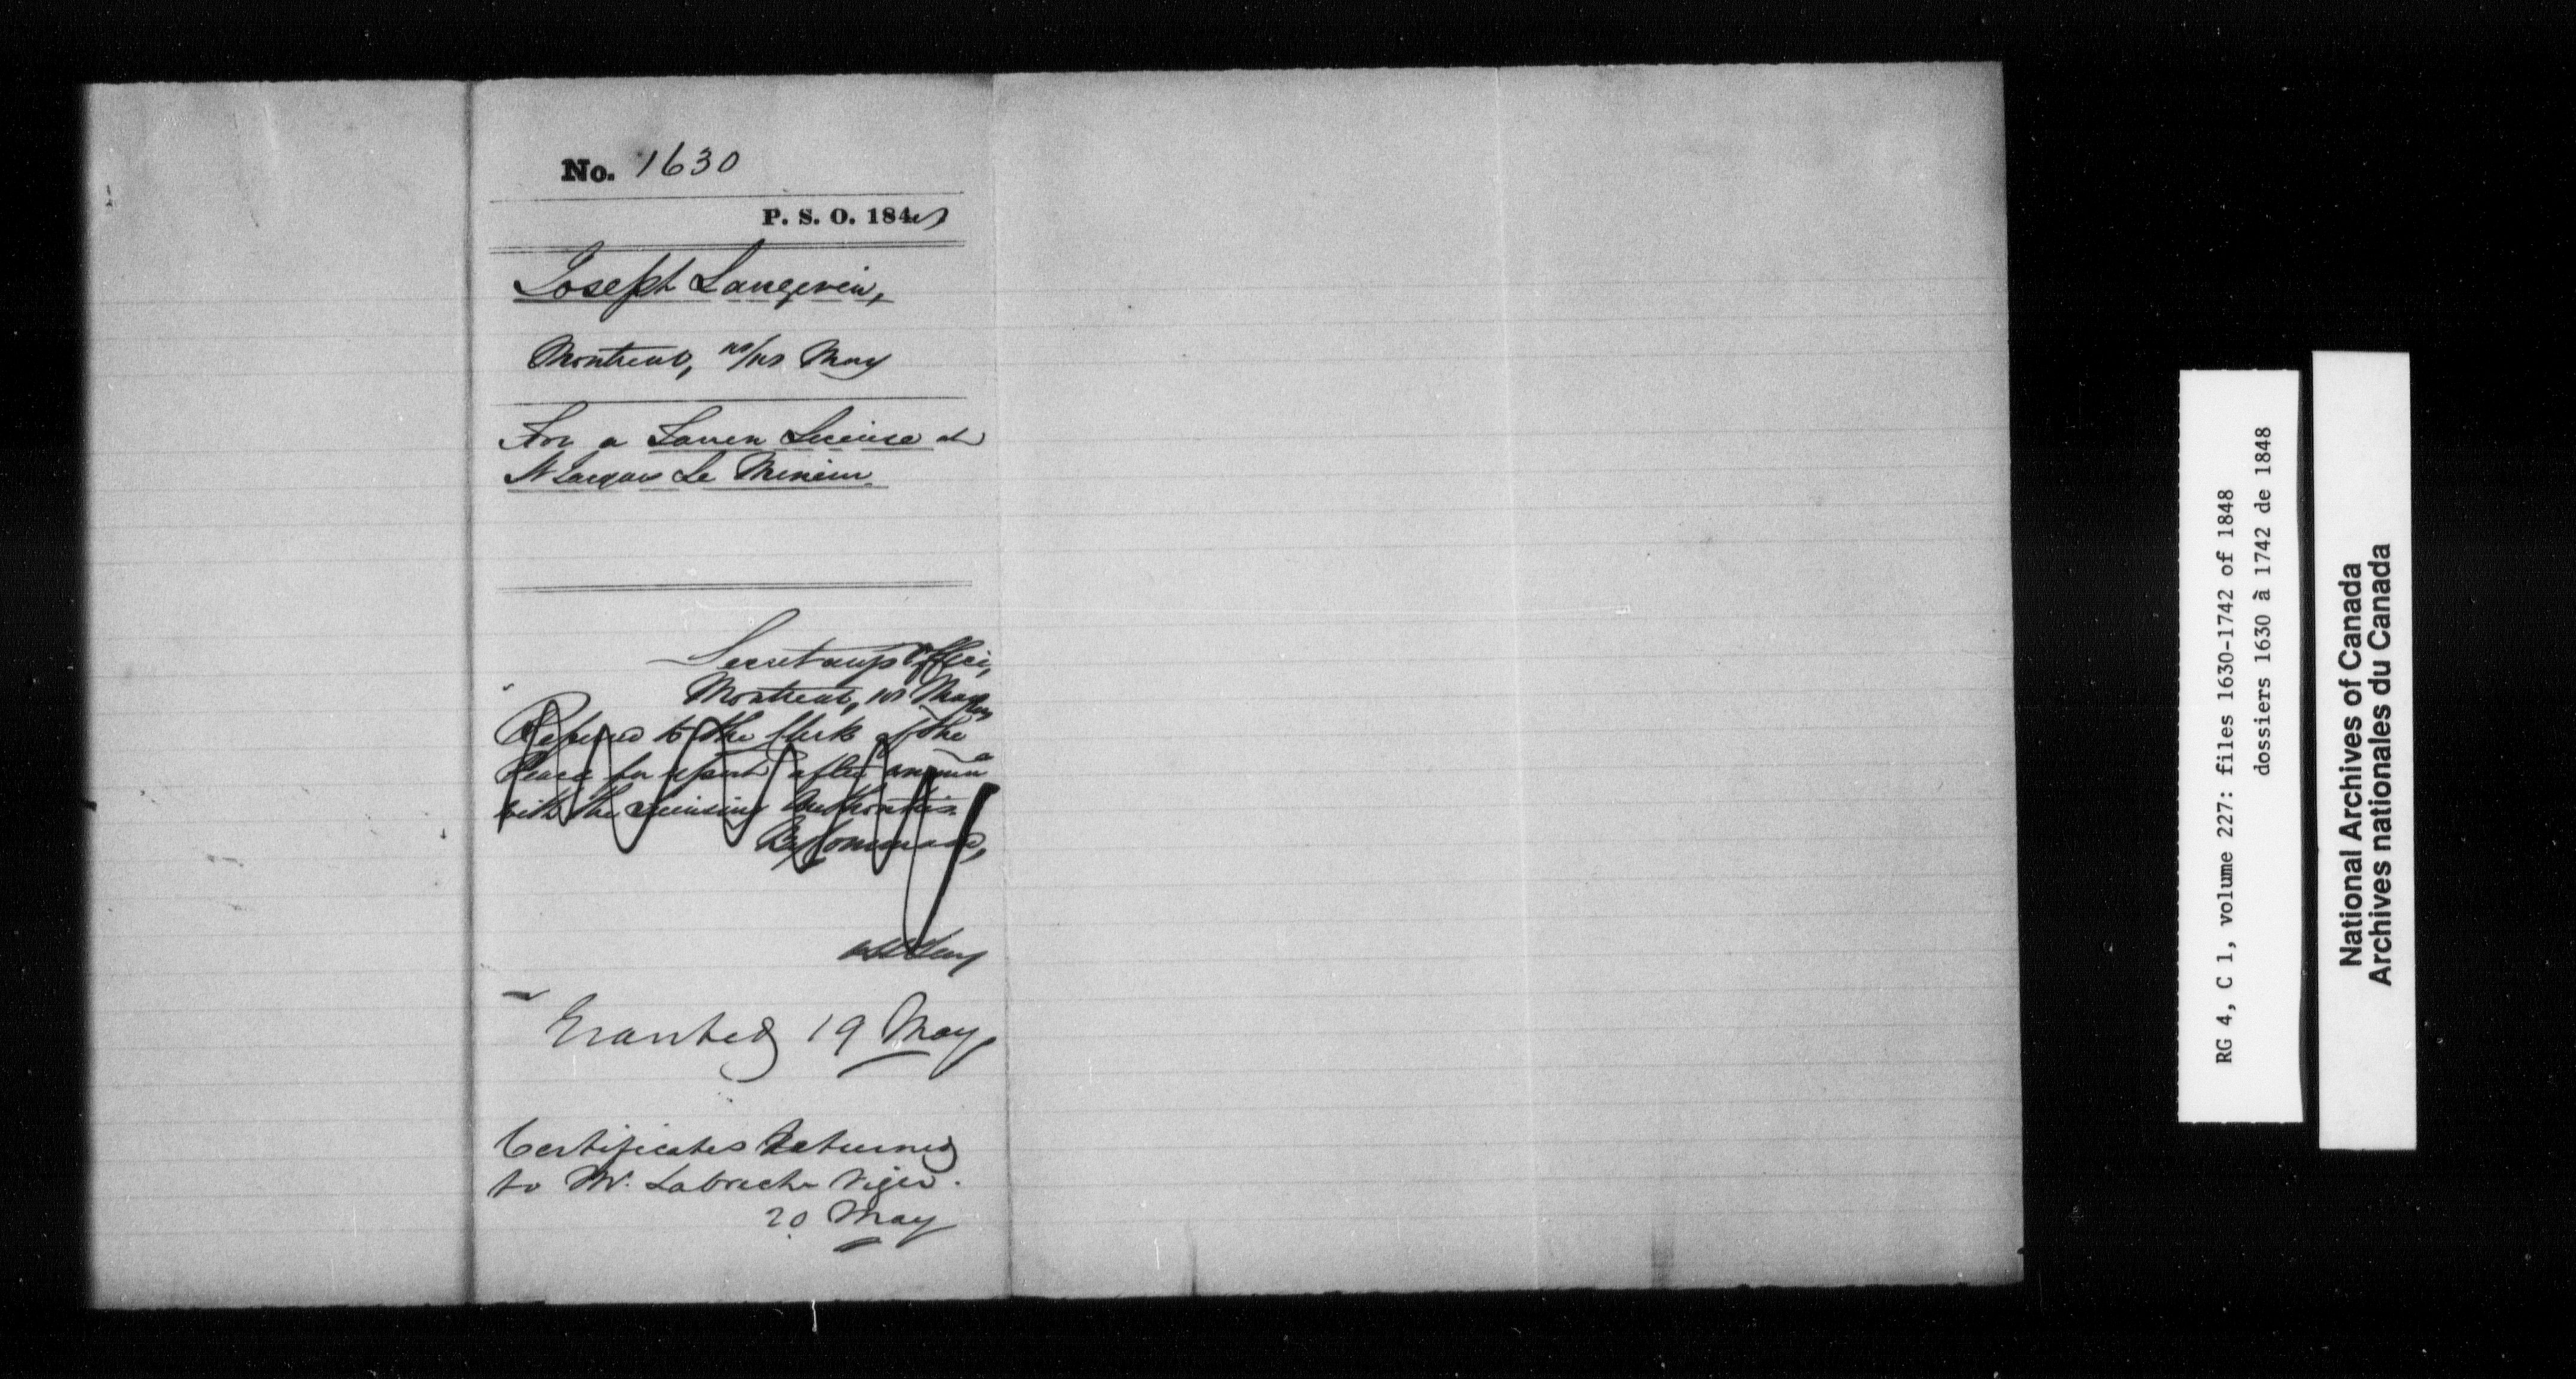 No. 1630
P. S. O. 184
Joseph Langevin,
Montreal, May
For a Tavern License at
St Jacques Le Mineur.
Secretary's Office,
Montreal, May
Referred to the Clerk of the
Peace for report after
with the Licensing Authorities.
By Command,
Granted 19 May
Certificates Returned
to Mr. Labreche Viger.
20 May
RG 4, C 1, volume 227: files 1630-1742 of 1848
dossiers 1630 à 1742 de 1848
National Archives of Canada
Archives nationales du Canada